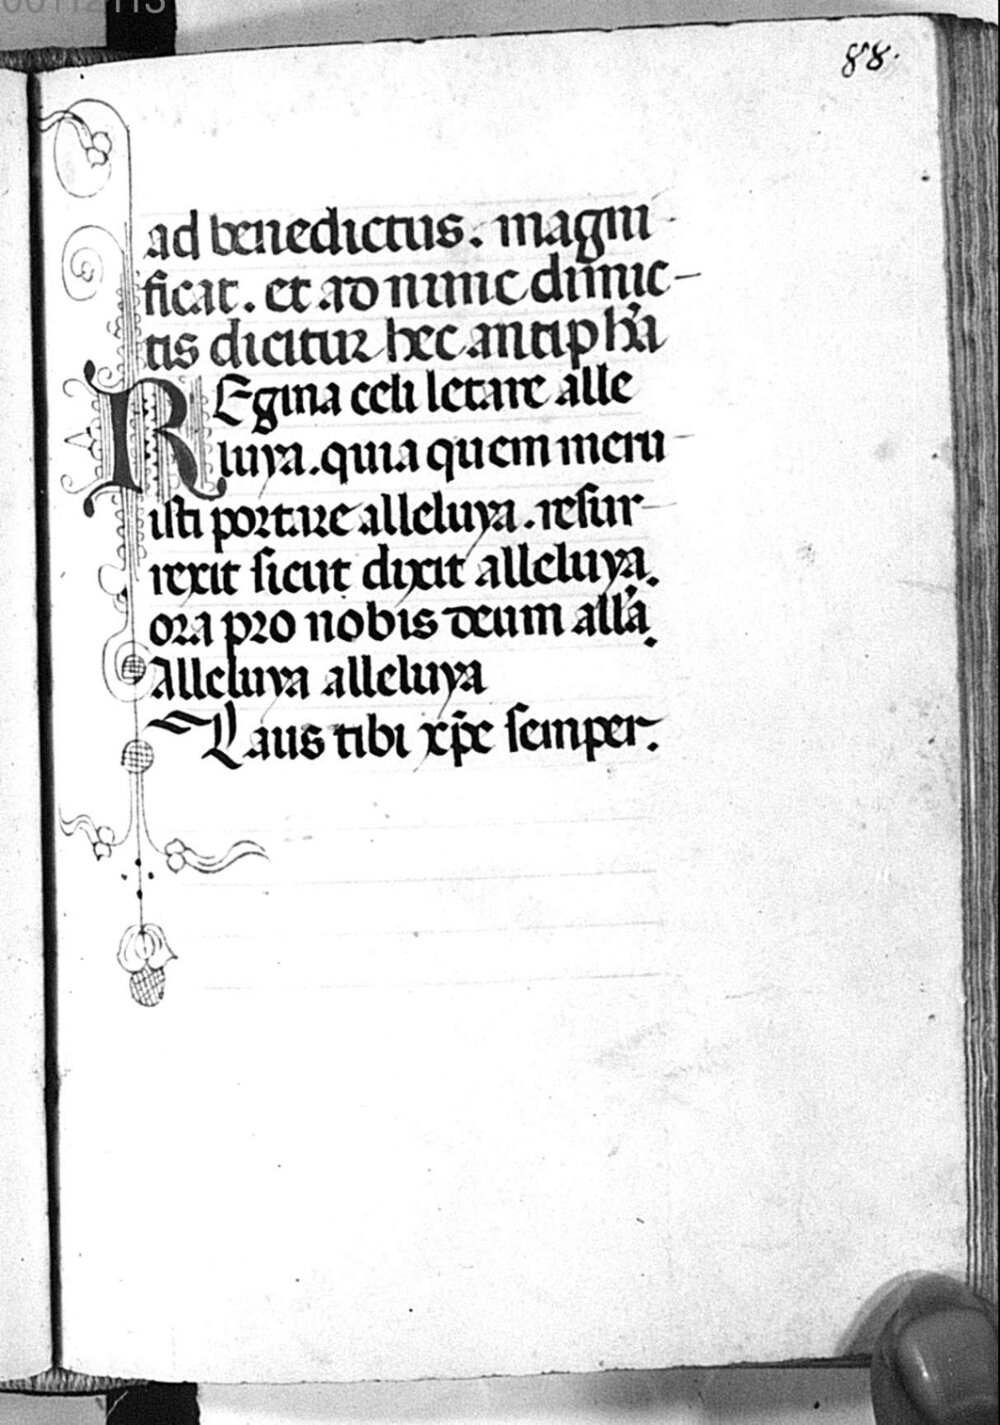 88.
ad benedictus. magni
ficat. et ad nunc dimic-
tis dicitur hec antiph̄a
REgina celi letare alle
luya. quia quem meru
isti portare alleluya. resur
rexit sicut dixit alleluya.
ora pro nobis deum all'a.
Alleluya alleluya
Laus tibi xp̄e semper.